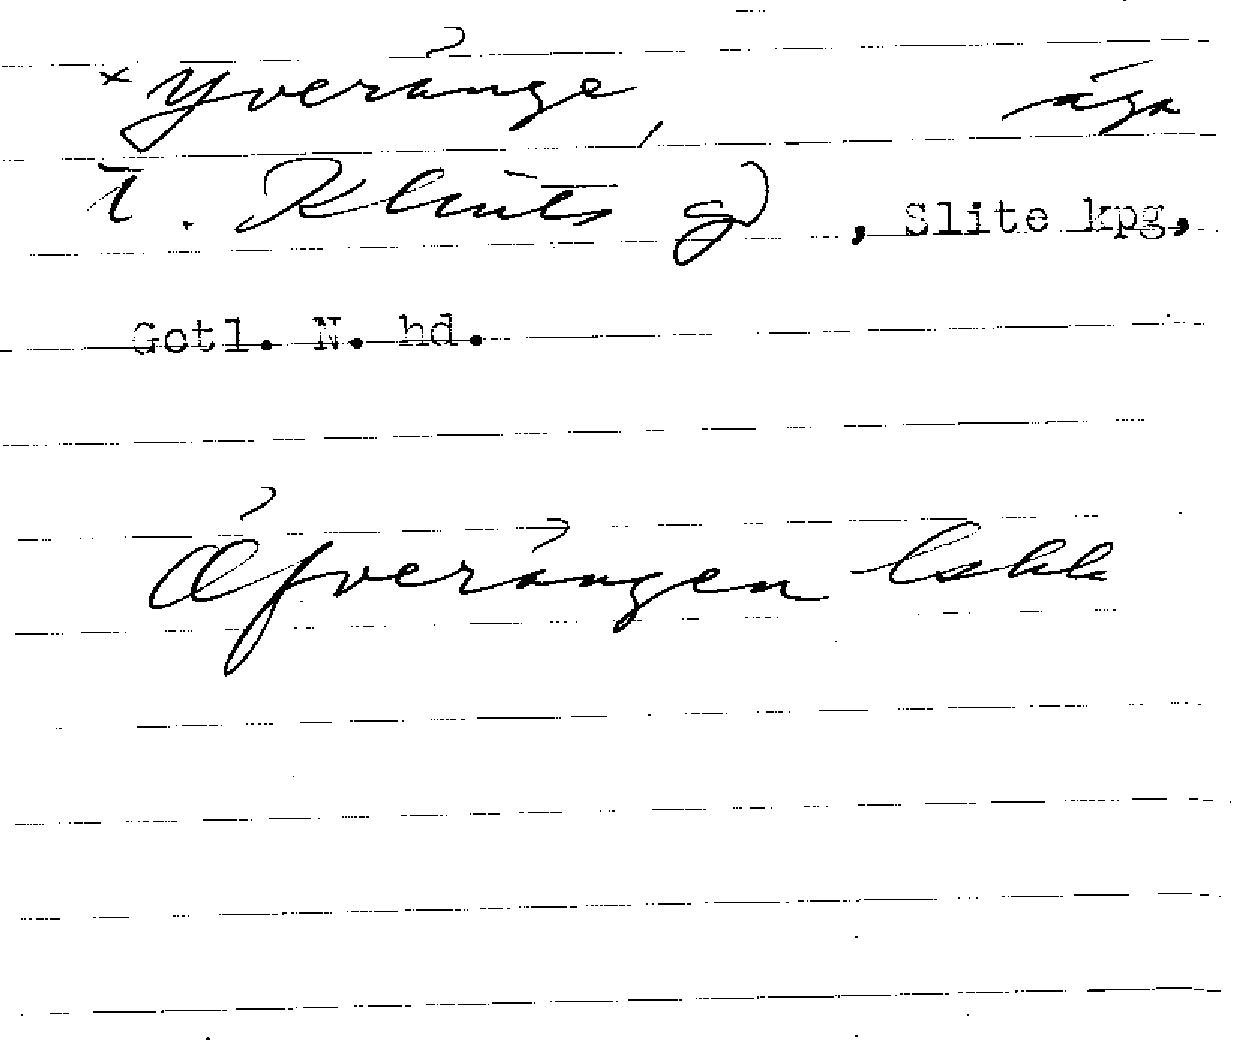 × Yveränge, äga
i. Klints gd, Slite kpg,
Gotl. N. hd.
Öfverängen Lskk